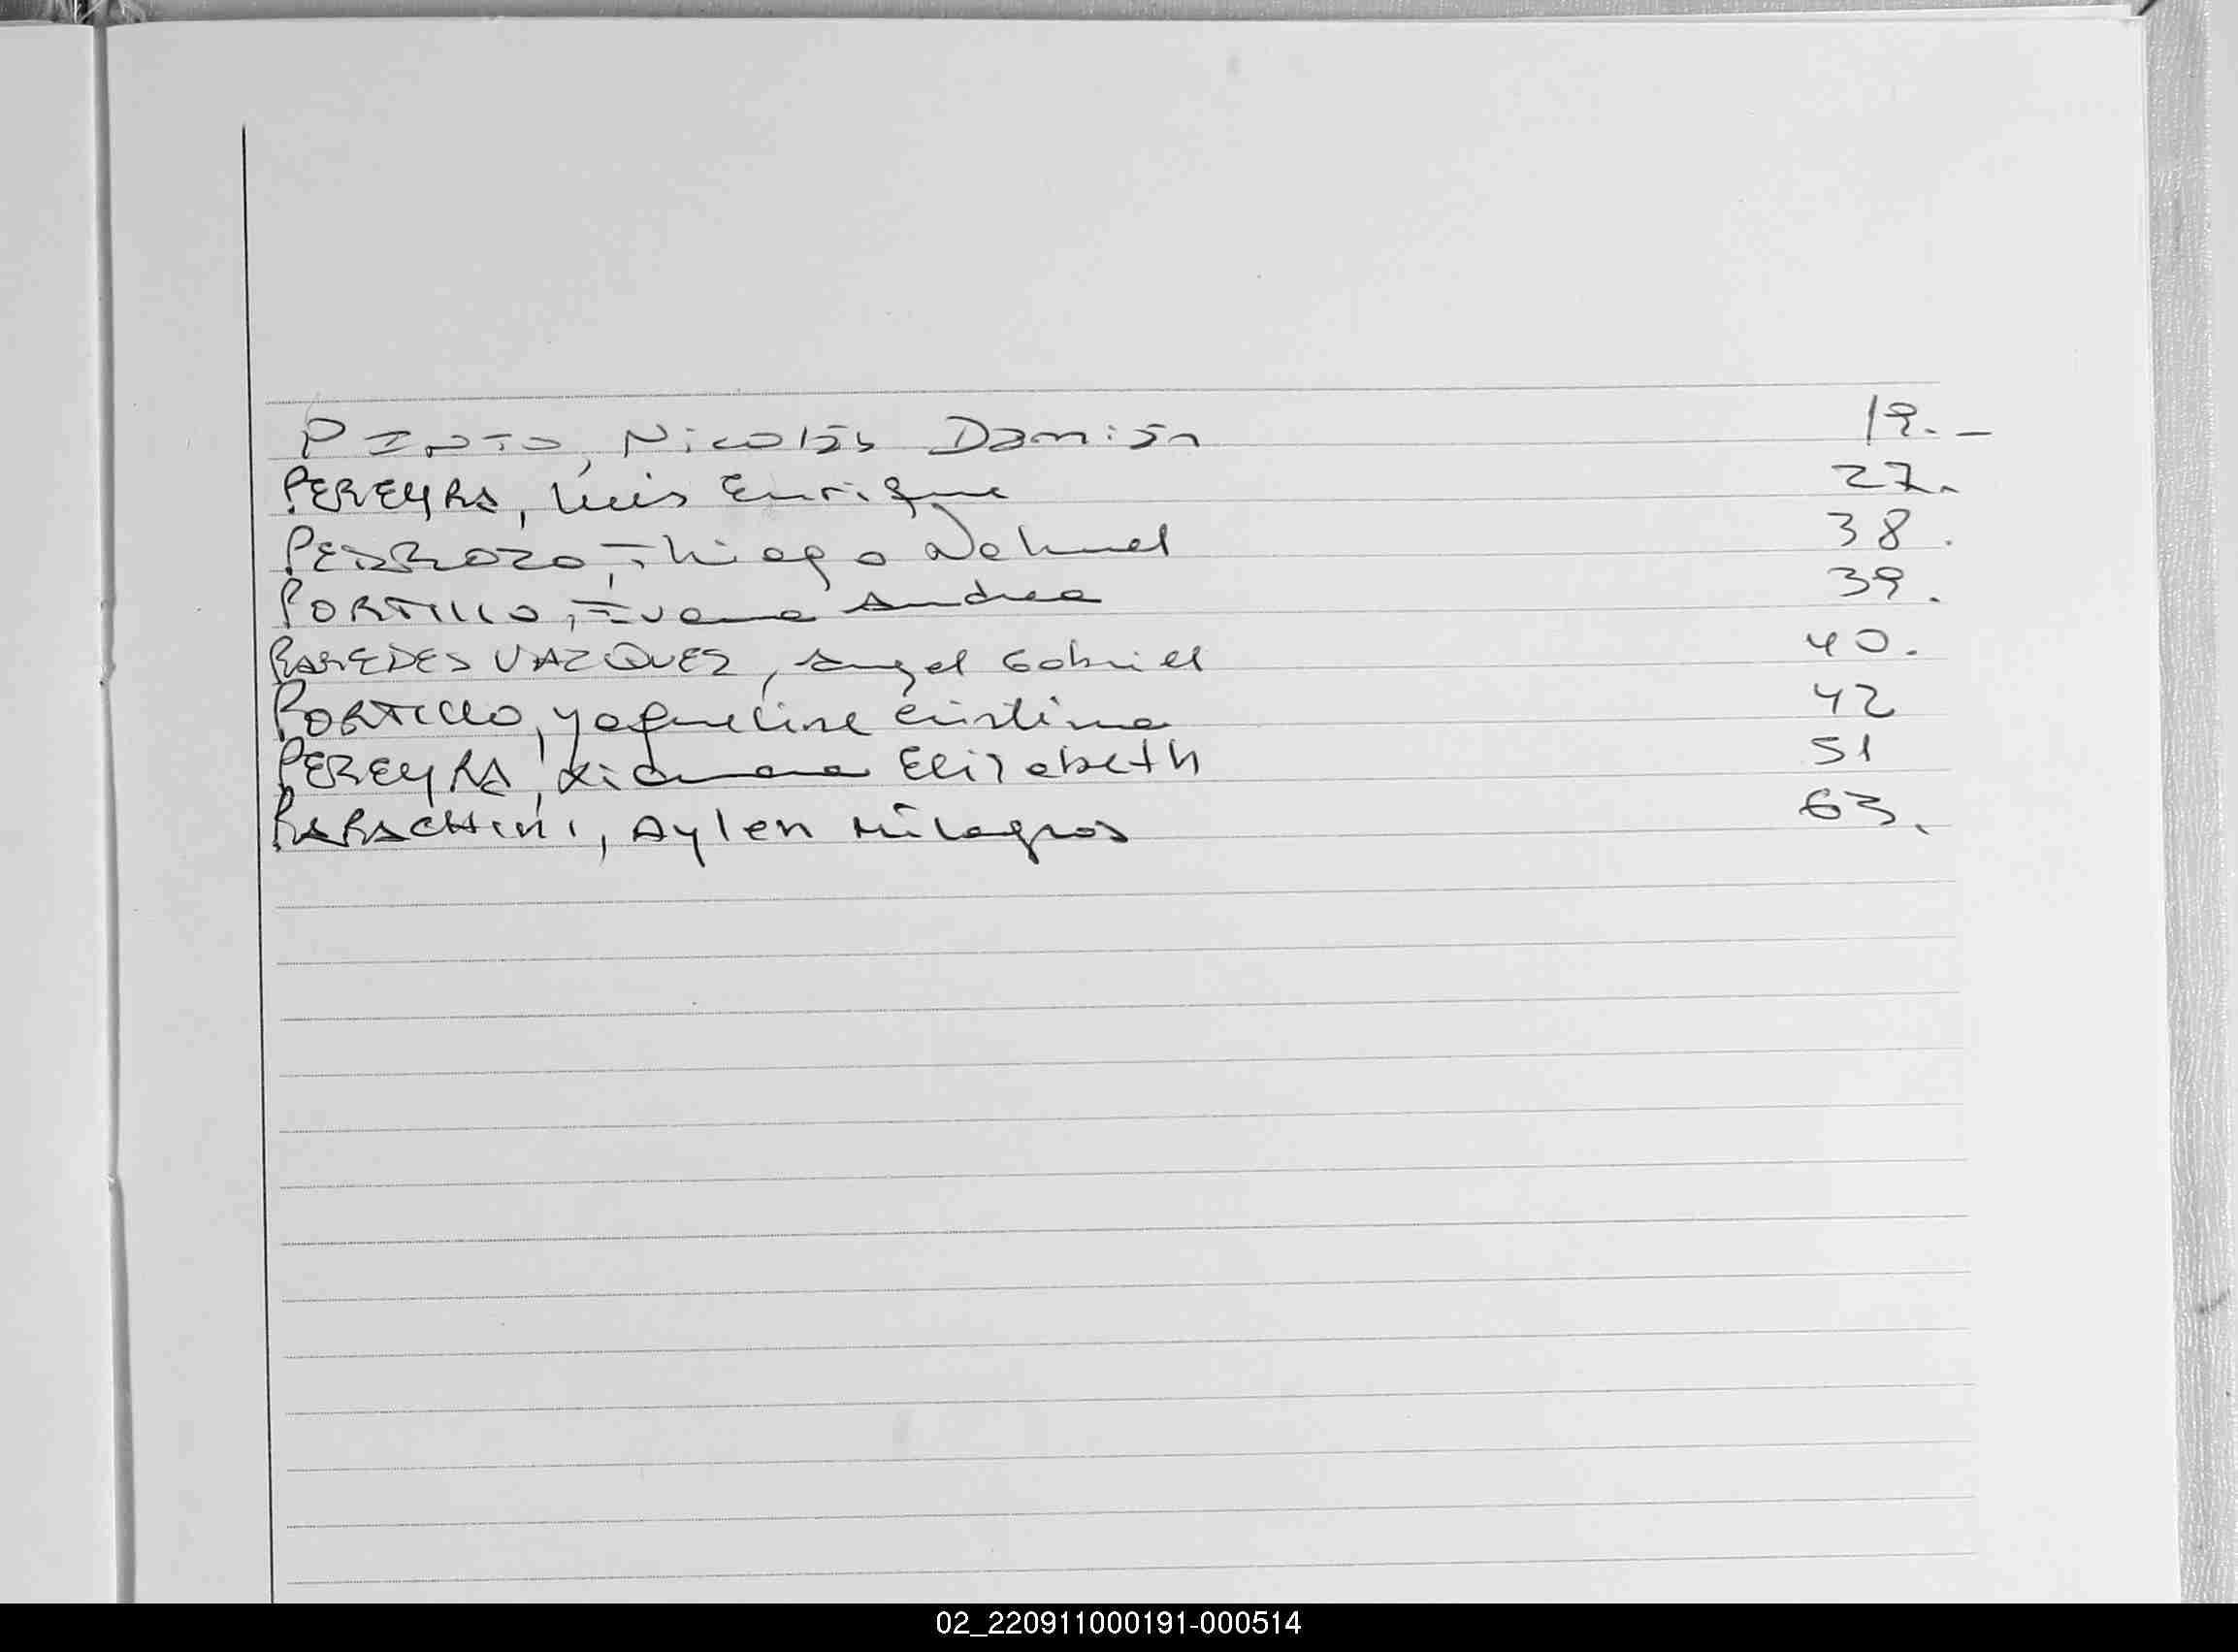 PINTO, Nicolás Damián 19.-
PEREYRA, Luis Enrique 27.
PEDROZO, Thiago Nahuel 38.
PORTILLO, Ivana Andrea 39.
PAREDES VAZQUEZ, Angel Gabriel 40.
PORTILLO, Yaqueline Cristina 42
PEREYRA, Xiomara Elizabeth 51
PARACHINI, Aylen Milagros 63.
02_220911000191-000514